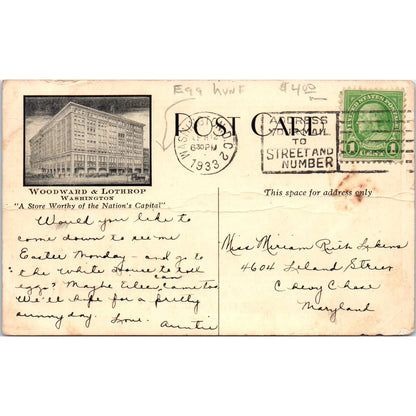 Egg hunt $4.00
POST CARD
WASHINGTON, D.C. 2
630 PM
1933
ADDRESS
YOUR MAIL
TO
STREET AND
NUMBER
1 1
WOODWARD & LOTHROP
WASHINGTON
"A Store Worthy of the Nation's Capital"
This space for address only
Would you like to
come down to see me
Easter Monday – and go to
the White House to roll
eggs? Maybe can came too
We'll hope for a pretty
sunny day. Love.
Auntie
Miss Miriam Ruth
4604 Leland Street
Chevy Chase
Maryland